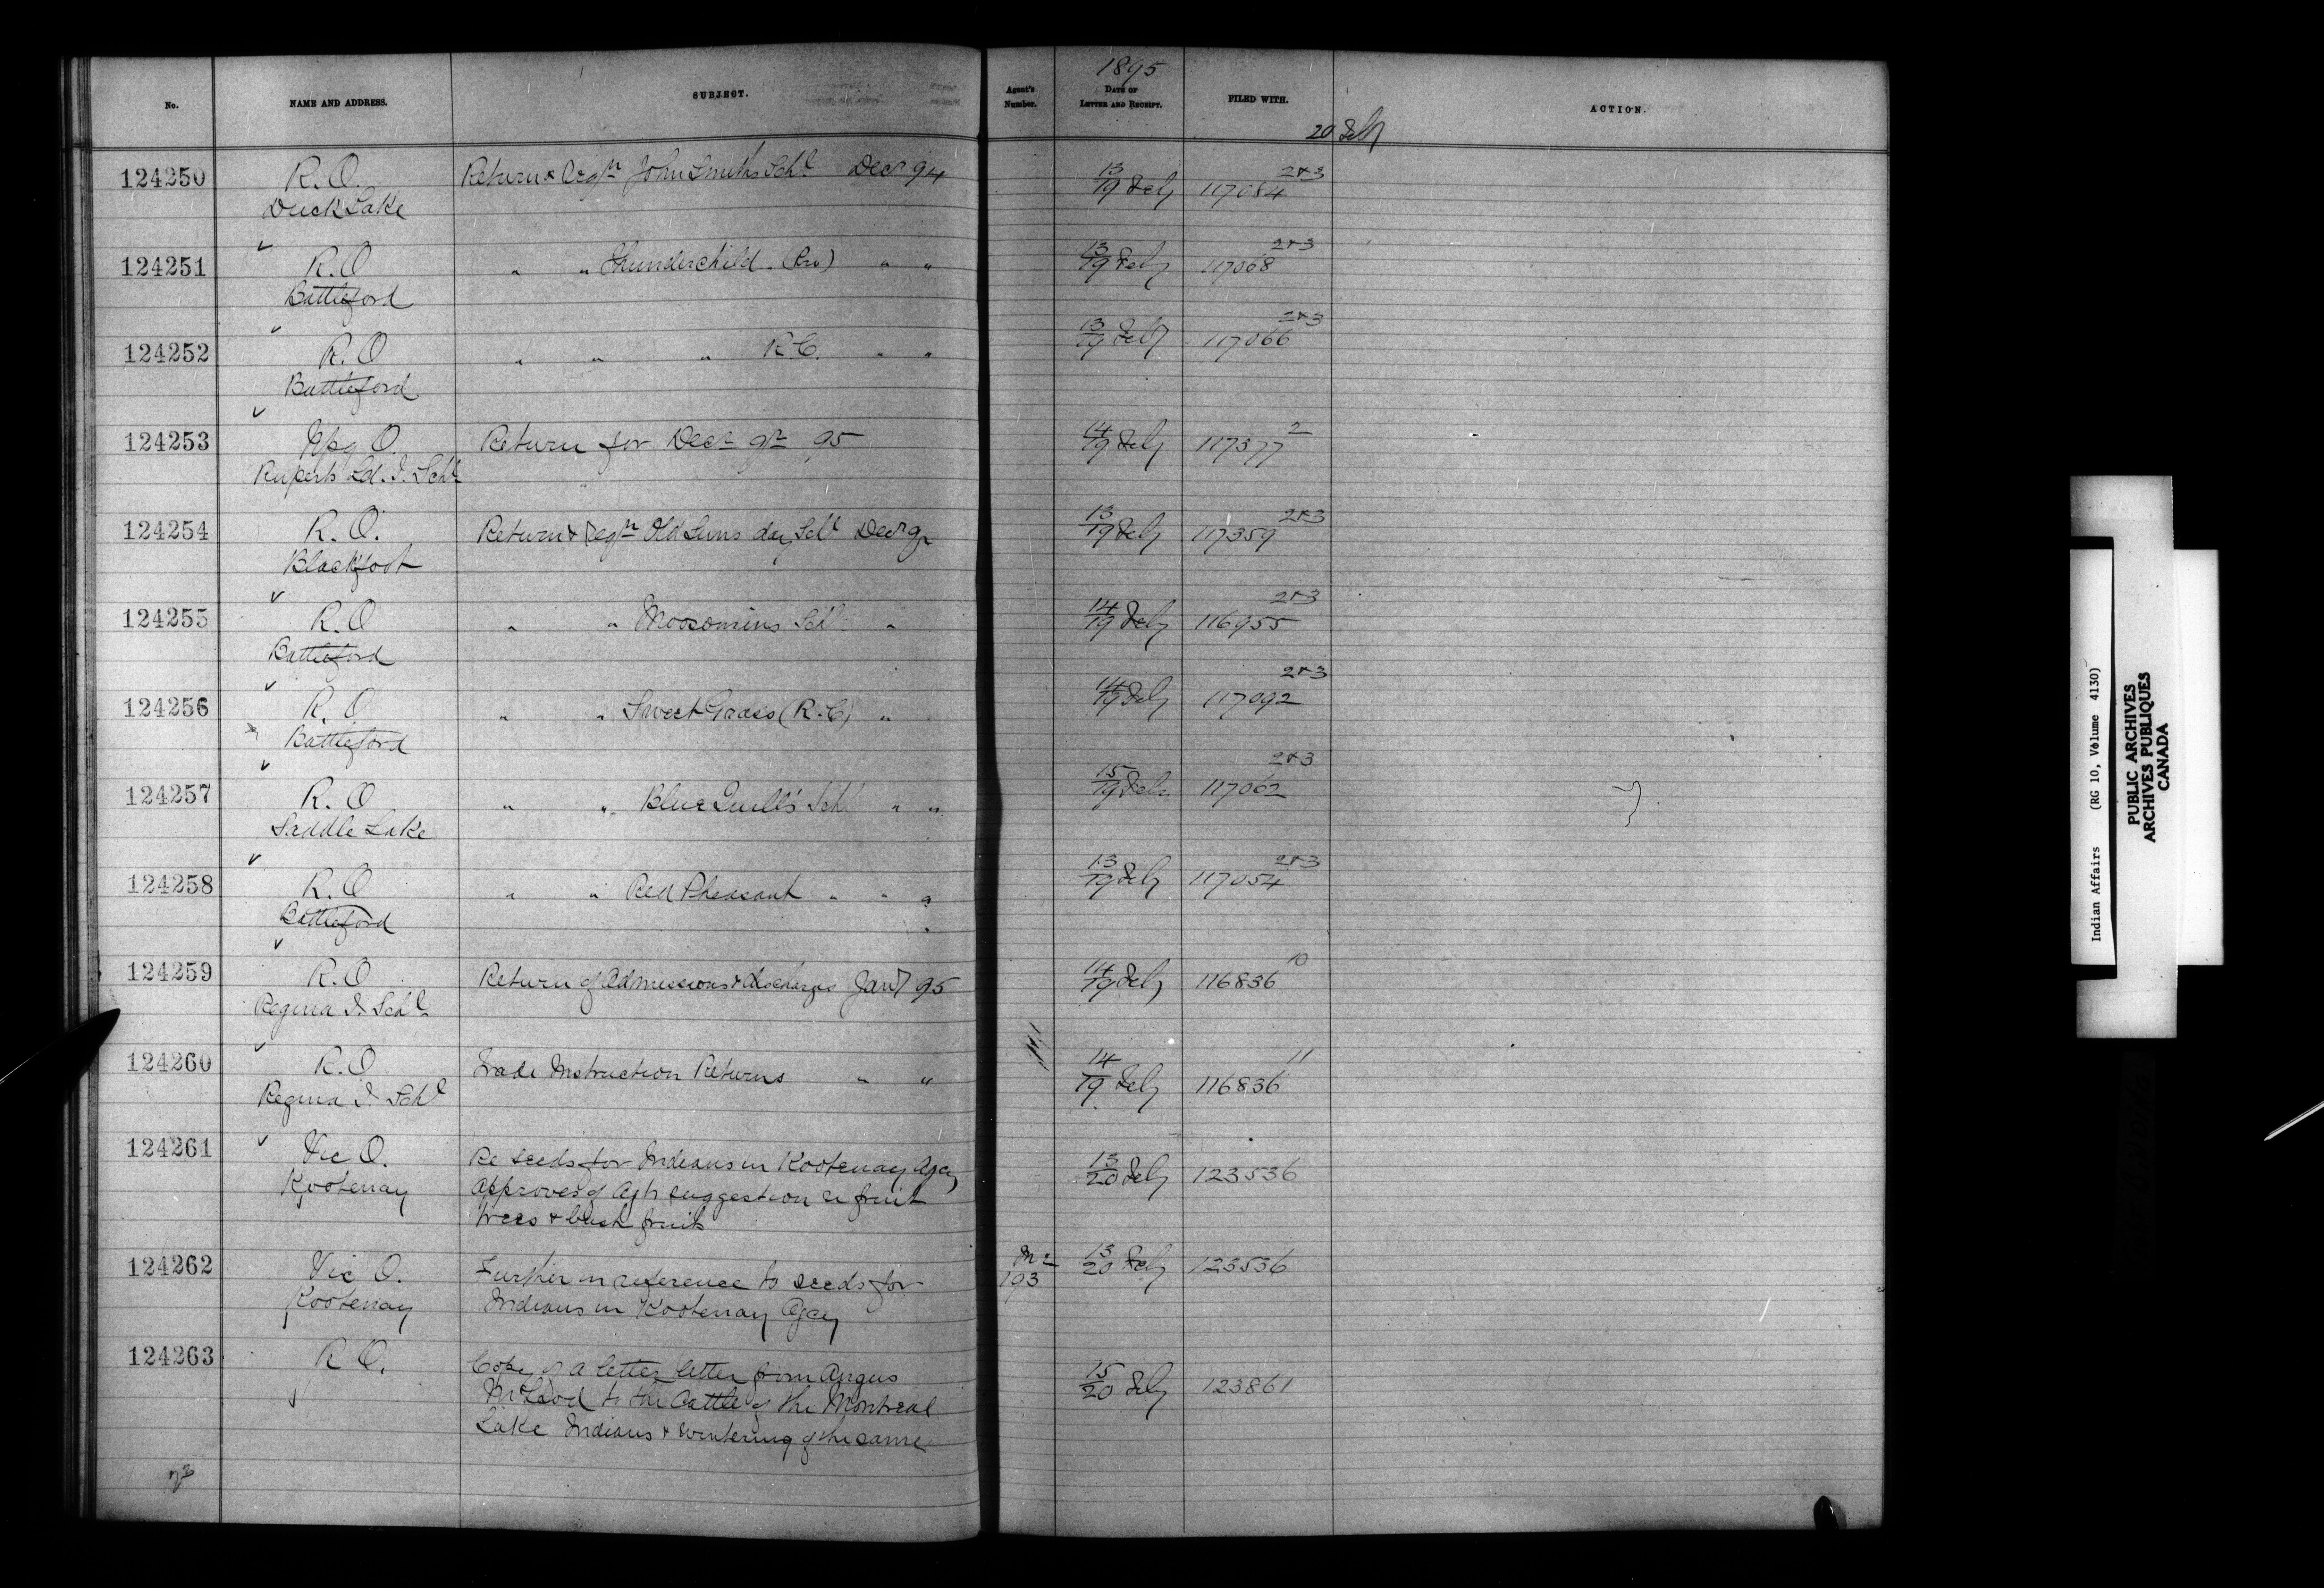 1895
No. NAME AND ADDRESS. SUBJECT. Agent's Number. DATE OF LETTER AND RECEIPT. FILED WITH. ACTION.
20 Feby
124250 R.O. Return & Reqn John Smiths Schl Decr 94 13/19 Feby 117084 2&3
Duck Lake
124251 R.O " " Thunderchild " " 13/19 Feby 117068 2&3
Battleford
124252 R.O " " " R.C. " " 13/19 Feby 117066 2&3
Battleford
124253 Wpg O. Return for Decr qr 95 14/19 Feby 117377 2
Ruperts Ld. I. Schl
124254 R.O. Return & Reqn Old Suns day Schl Decr qr 13/19 Feby 117359 2&3
Blackfoot
124255 R.O " " Moosomins Schl " 14/19 Feby 116955 2&3
Battleford
124256 R.O " " Sweet Grass (R.C) " 14/19 Feby 117092 2&3
Battleford
124257 R.O " " Blue Quill's Schl " " 15/19 Feby 117062 2&3
Saddle Lake
124258 R.O " " Red Pheasant " " " 13/19 Feby 117054 2&3
Battleford
124259 R.O Return of Admissions & discharges Jany 95 14/19 Feby 116836 10
Regina I. Schl
124260 R.O Trade Instruction Returns " " 14/19 Feby 116836 11
Regina I. Schl
124261 Vic O. Re seeds for Indians in Kootenay Agcy 13/20 Feby 123536
Kootenay approves of Agts suggestion re fruit
trees & bush fruits
124262 Vic O. Further in reference to seeds for 193 13/20 Feby 123536
Kootenay Indians in Kootenay Agcy
124263 R O. Copy of a letter letter from Angus 15/20 Feby 123861
McLeod to the Cattle of the Montreal
Lake Indians & wintering of the same
Indian Affairs (RG 10, Volume 4130)
PUBLIC ARCHIVES
ARCHIVES PUBLIQUES
CANADA